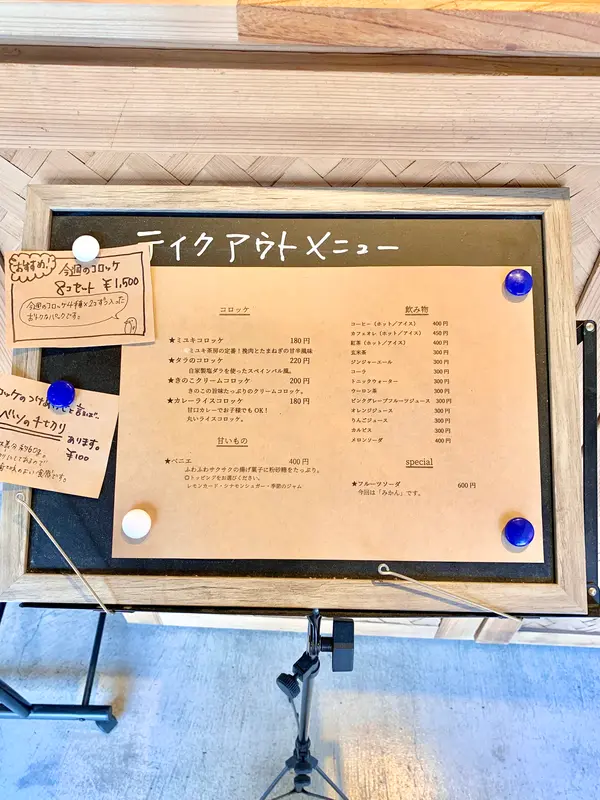 テイクアウトメニュー
おすすめ!
今週のコロッケ
8コセット ¥1,500
今週のコロッケ4種×2コずつ入った
おトクなパックです。
千切り
あります。
¥100
コロッケ
★ミユキコロッケ 180円
ミユキ茶房の定番!挽肉とたまねぎの甘辛風味
★タラのコロッケ 220円
自家製塩ダラを使ったスペインバル風。
★きのこクリームコロッケ 200円
きのこの旨味たっぷりのクリームコロッケ。
★カレーライスコロッケ 180円
甘口カレーでお子様でもOK!
丸いライスコロッケ。
甘いもの
★ベニエ 400円
ふわふわサクサクの揚げ菓子に粉砂糖をたっぷり。
◎トッピングをお選びください。
レモンカード・シナモンシュガー・季節のジャム
飲み物
コーヒー(ホット/アイス) 400円
カフェオレ(ホット/アイス) 450円
紅茶(ホット/アイス) 400円
玄米茶 300円
ジンジャーエール 300円
コーラ 300円
トニックウォーター 300円
ウーロン茶 300円
ピンクグレープフルーツジュース 300円
オレンジジュース 300円
りんごジュース 300円
カルピス 300円
メロンソーダ 400円
special
★フルーツソーダ 600円
今回は「みかん」です。